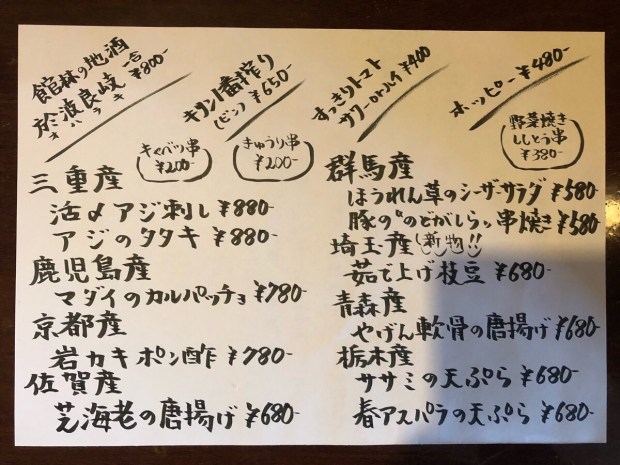 館林の地酒
於波良岐 一合 ¥800-
オハラキ
キリン一番搾り
(ビン) ¥650-
すっきりトマト
サワーorハイ ¥400
ホッピー ¥480-
キャベツ串
¥200-
きゅうり串
¥200-
野菜焼き
ししとう串
¥380-
三重産
活〆アジ刺し ¥880-
アジのタタキ ¥880-
鹿児島産
マダイのカルパッチョ ¥780-
京都産
岩カキポン酢 ¥780-
佐賀産
芝海老の唐揚げ ¥680-
群馬産
ほうれん草のシーザーサラダ ¥580
豚の"のどがしら"串焼き ¥580
埼玉産 新物!!
茹で上げ枝豆 ¥680-
青森産
やげん軟骨の唐揚げ ¥680-
栃木産
ササミの天ぷら ¥680-
春アスパラの天ぷら ¥680-